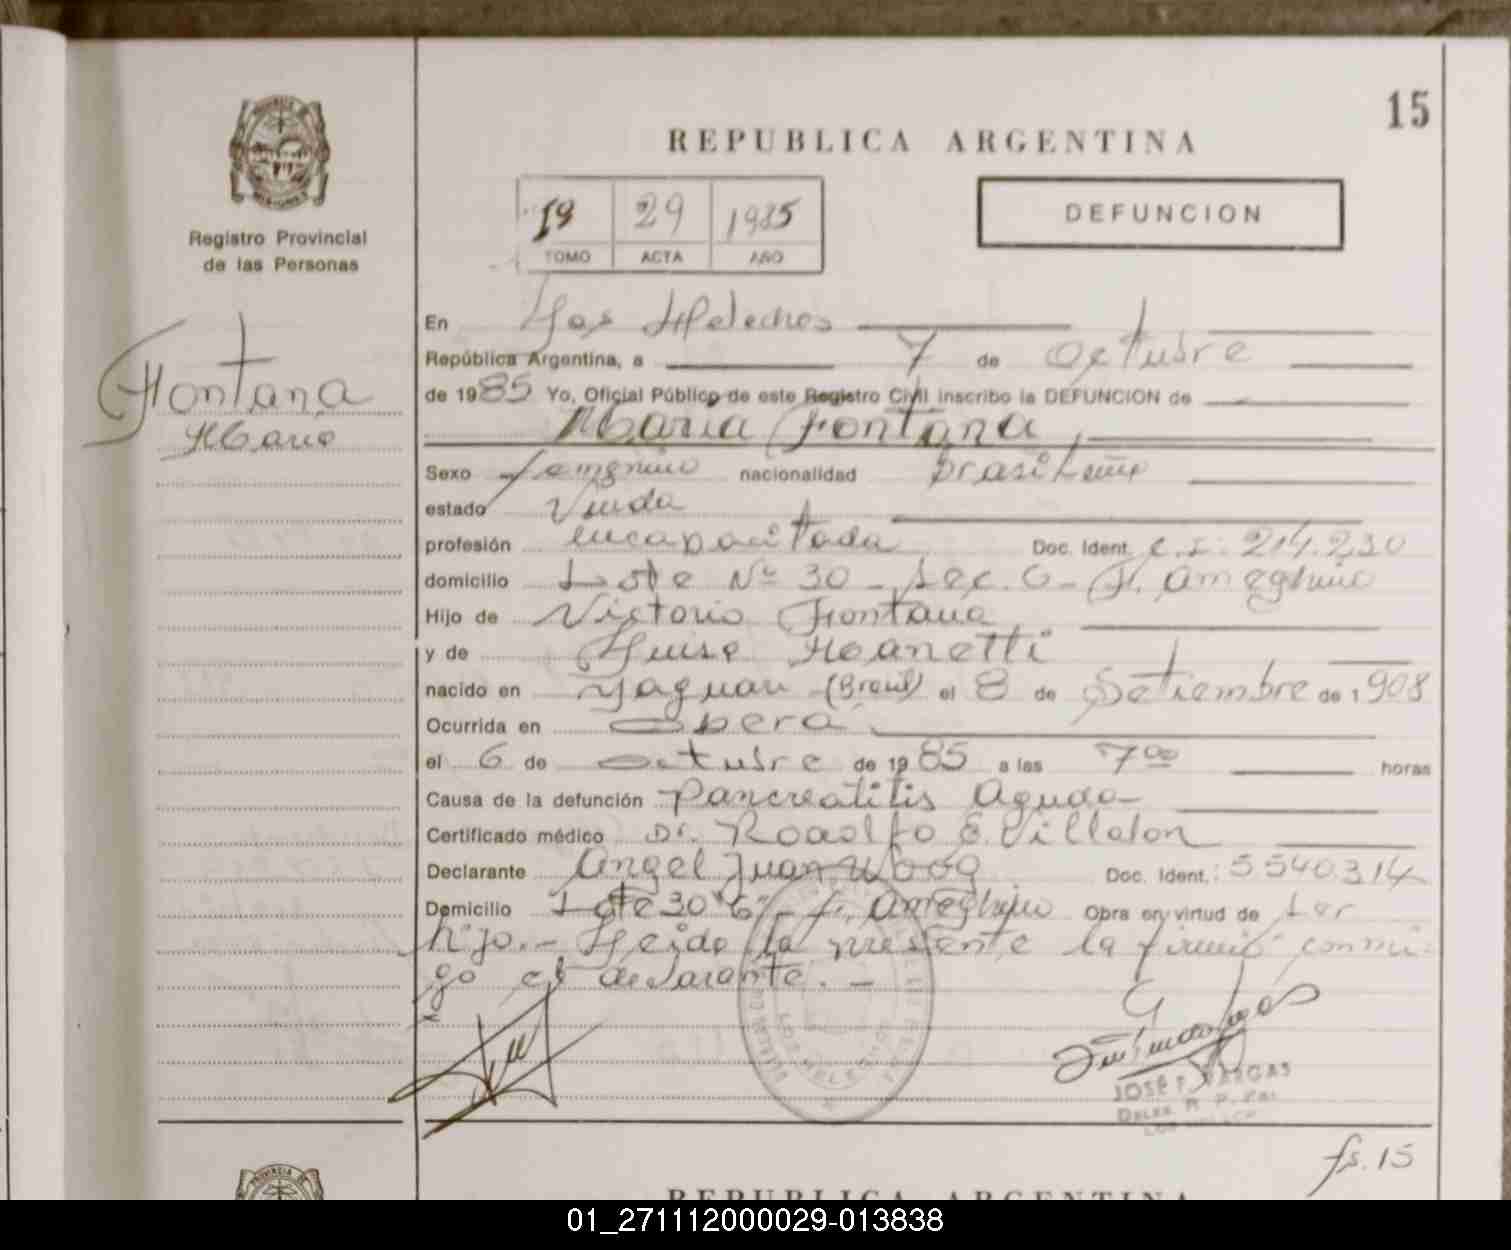 15
REPUBLICA ARGENTINA
29 1985
TOMO ACTA AÑO
DEFUNCION
Registro Provincial
de las Personas
Fontana
Maria
En Los Helechos
República Argentina, a 7 de Octubre
de 1985 Yo, Oficial Público de este Registro Civil inscribo la DEFUNCION de
Maria Fontana
Sexo femenino nacionalidad brasileña
estado Viuda
profesión incapacitada Doc. Ident. C.I: 214.230
domicilio Lote Nº 30 - Sec. 6 - F. Ameghino
Hijo de Victorio Fontana
y de Luisa
nacido en Yaguari (Brasil) el 8 de Setiembre de 1908
Ocurrida en Oberá
el 6 de octubre de 1985 a las 7 00 horas
Causa de la defunción Pancreatitis Aguda
Certificado médico Dr. Rodolfo E. Villalon
Declarante Angel Juan Doc. Ident.: 5540314
Domicilio Lote 30 F. Ameghino Obra en virtud de ser
hijo.- Leida la presente la firmó conmi-
go el declarante. -
JOSÉ F. VARGAS
fs. 15
REPUBLICA ARGENTINA
01_271112000029-013838